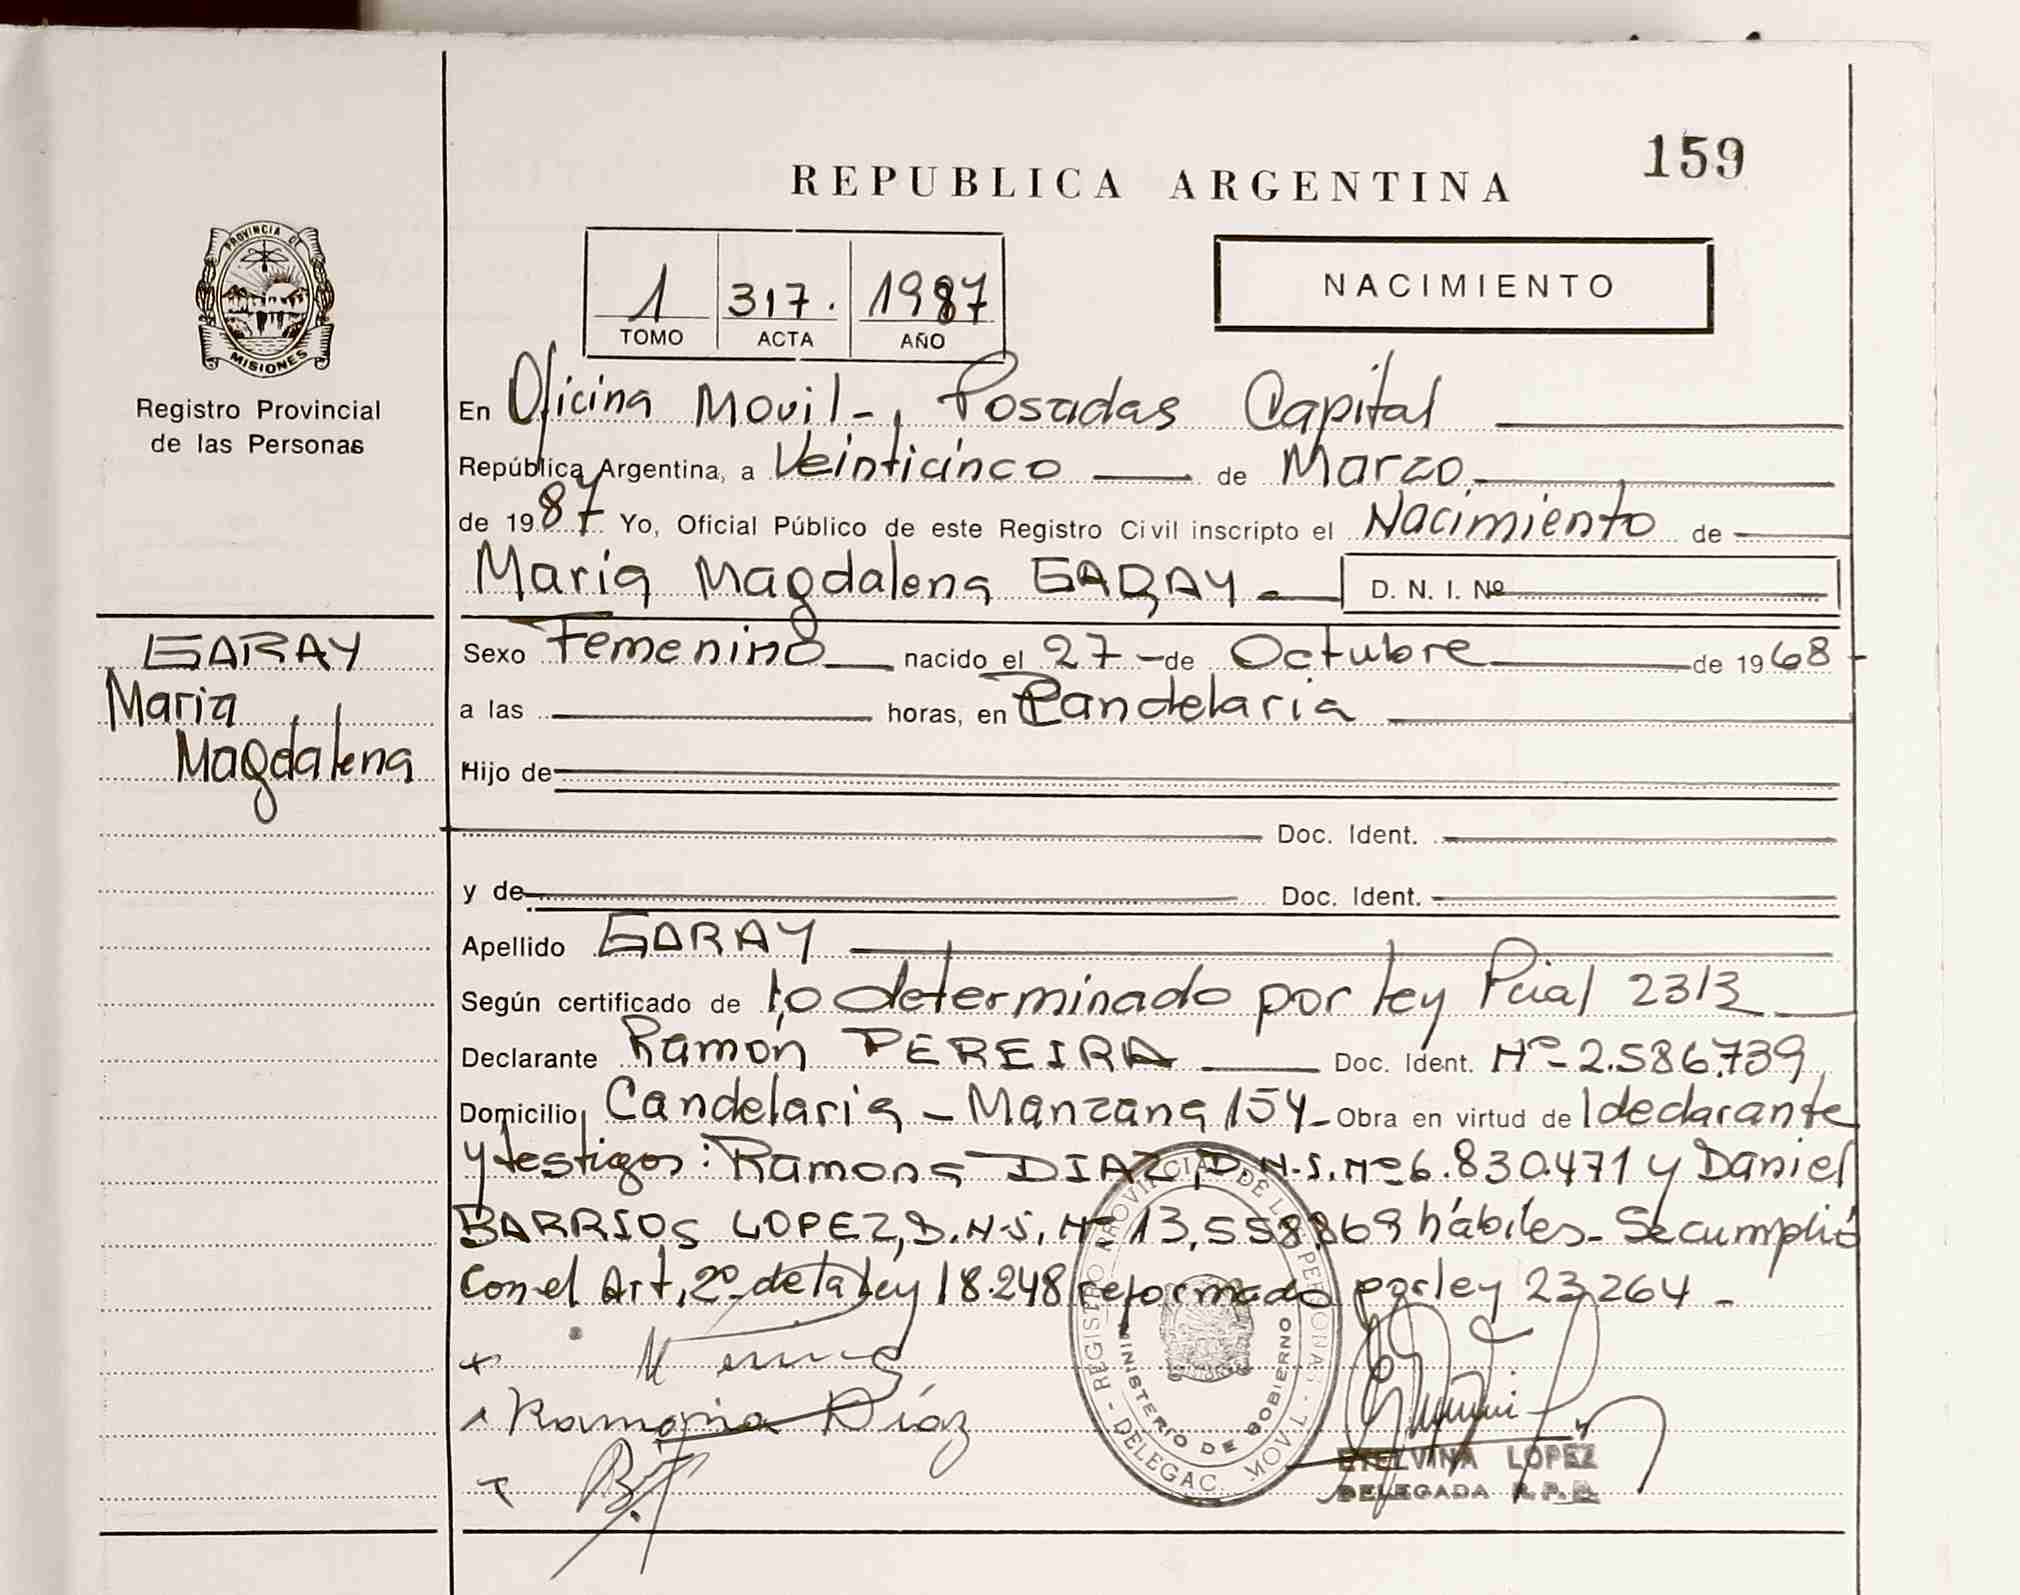 159
REPUBLICA ARGENTINA
PROVINCIA DE
MISIONES
Registro Provincial
de las Personas
1 317. 1987
TOMO ACTA AÑO
NACIMIENTO
En Oficina Movil-, Posadas Capital
República Argentina, a Veinticinco de Marzo
de 1987 Yo, Oficial Público de este Registro Civil inscripto el Nacimiento de
Maria Magdalena GARAY D. N. I. Nº
GARAY
Maria
Magdalena
Sexo Femenino nacido el 27 - de Octubre de 1968
a las horas, en Candelaria
Hijo de
Doc. Ident.
y de Doc. Ident.
Apellido GARAY
Según certificado de lo determinado por ley Pcial 2313
Declarante Ramón PEREIRA Doc. Ident. Nº- 2.586.739
Domicilio Candelaria - Manzana 154 - Obra en virtud de l declarante
y testigos: Ramona DIAZ, D.N.I. Nº 6.830.471 y Daniel
BARRIOS LOPEZ, D.N.I. Nº 13.558.869 hábiles - Se cumplió
con el Art. 2º de la Ley 18.248 reformado por ley 23.264 -
Ramona Díaz
REGISTRO PROVINCIAL DE LAS PERSONAS - DELEGAC. MOVIL -
MINISTERIO DE GOBIERNO
ETELVINA LOPEZ
DELEGADA R.P.P.